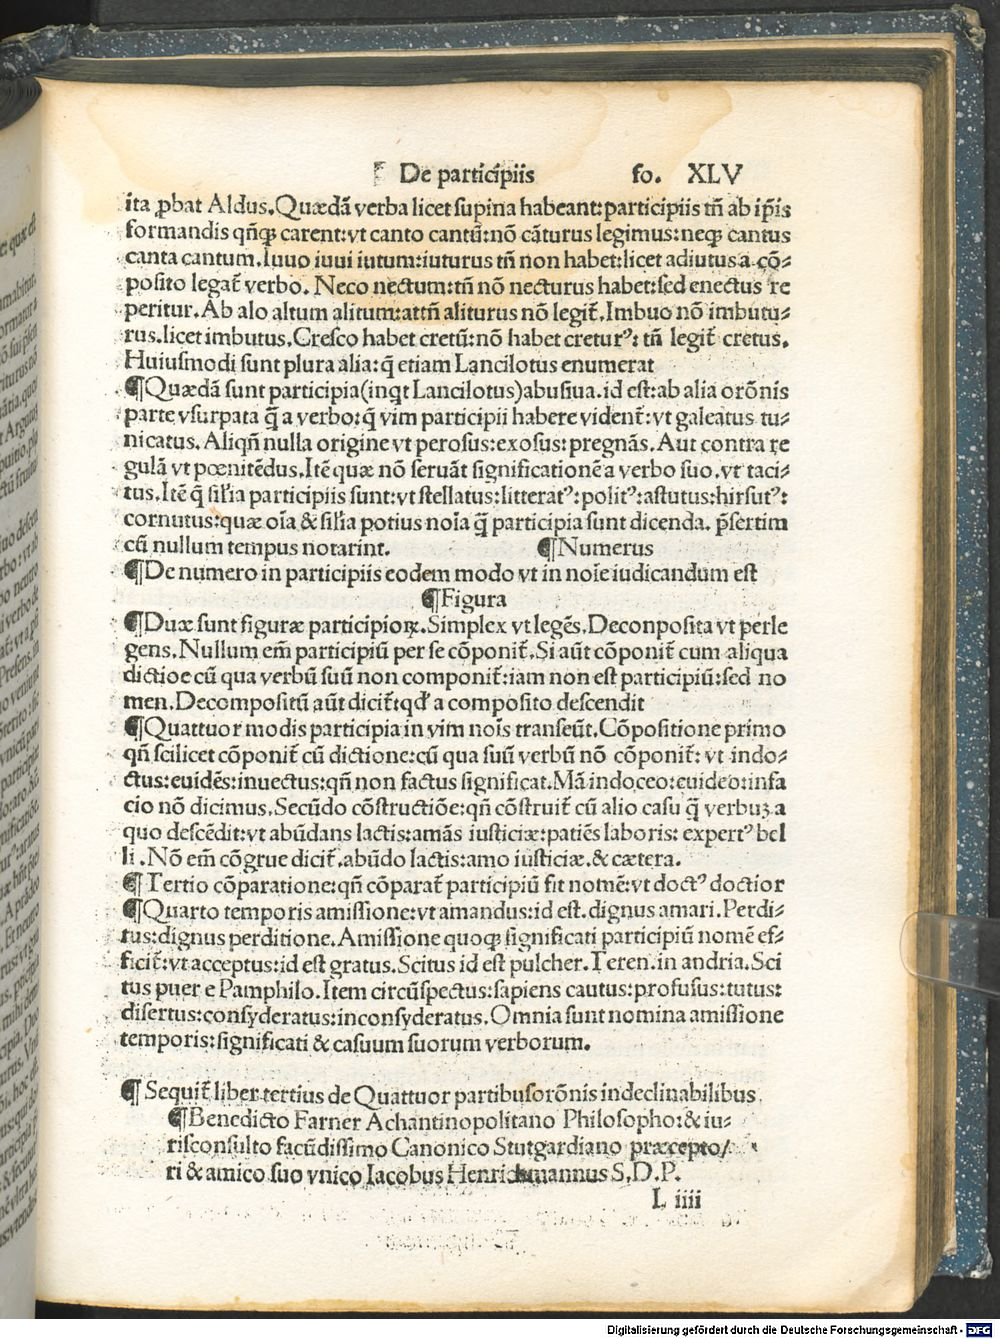 De participiis fo. XLV
ita ꝓbat Aldus. Quædā verba licet supina habeant: participiis tn̄ ab ip̄is
formandis qn̄qꝫ carent: vt canto cantū: nō cāturus legimus: neqꝫ cantus
canta cantum. Iuuo iuui iutum: iuturus tn̄ non habet: licet adiutus a cō⸗
posito legat᷑ verbo. Neco nectum: tn̄ nō necturus habet: sed enectus re
peritur. Ab alo altum alitum: attn̄ aliturus nō legit᷑. Imbuo nō imbutu⸗
rus. licet imbutus. Cresco habet cretū: nō habet creturꝰ: tn̄ legit᷑ cretus.
Huiusmodi sunt plura alia: q̄ etiam Lancilotus enumerat
¶Quædā sunt participia(inqt Lancilotus)abusiua. id est: ab alia orōnis
parte vsurpata q̄ a verbo: q̄ vim participii habere vident᷑: vt galeatus tu⸗
nicatus. Aliqn̄ nulla origine vt perosus: exosus: pregnās. Aut contra re
gulā vt pœnitēdus. Itē quæ nō seruāt significationē a verbo suo. vt taci⸗
tus. Itē q̄ sil̄ia participiis sunt: vt stellatus: litteratꝰ: politꝰ: astutus: hirsutꝰ:
cornutus: quæ oīa & sil̄ia potius noīa q̄ participia sunt dicenda. p̄sertim
cū nullum tempus notarint. ¶Numerus
¶De numero in participiis eodem modo vt in noīe iudicandum est
¶Figura
¶Duæ sunt figuræ participioꝝ. Simplex vt legēs. Deconposita vt perle
gens. Nullum em̄ participiū per se cōponit᷑. Si aūt cōponit᷑ cum aliqua
dictioe cū qua verbū suū non componit᷑: iam non est participiū: sed no
men. Decompositū aūt dicit᷑: qd̄ a composito descendit
¶Quattuor modis participia in vim noīs transeūt. Cōpositione primo
qn̄ scilicet cōponit᷑ cū dictione: cū qua suū verbū nō cōponit᷑: vt indo⸗
ctus: euidēs: inuectus: qn̄ non factus significat. Mā indoceo: euideo: infa
cio nō dicimus. Secūdo cōstructiōe: qn̄ cōstruit᷑ cū alio casu q̄ verbuꝫ a
quo descēdit: vt abūdans lactis: amās iusticiæ: patiēs laboris: expertꝰ bel
li. Nō em̄ cōgrue dicit᷑. abūdo lactis: amo iusticiæ. & cætera.
¶Tertio cōparatione: qn̄ cōparat᷑ participiū fit nomē: vt doctꝰ doctior
¶Quarto temporis amissione: vt amandus: id est. dignus amari. Perdi⸗
tus: dignus perditione. Amissione quoqꝫ significati participiū nomē ef⸗
ficit᷑: vt acceptus: id est gratus. Scitus id est pulcher. Teren. in andria. Sci
tus puer e Pamphilo. Item circūspectus: sapiens cautus: profusus: tutus:
disertus: consyderatus: inconsyderatus. Omnia sunt nomina amissione
temporis: significati & casuum suorum verborum.
¶Sequit᷑ liber tertius de Quattuor partibus orōnis indeclinabilibus.
¶Benedicto Farner Achantinopolitano Philosopho: & iu⸗
risconsulto facūdissimo Canonico Stutgardiano præcepto/
ri & amico suo vnico Iacobus Henrichmannus S. D. P.
L iiii
Digitalisierung gefördert durch die Deutsche Forschungsgemeinschaft - DFG